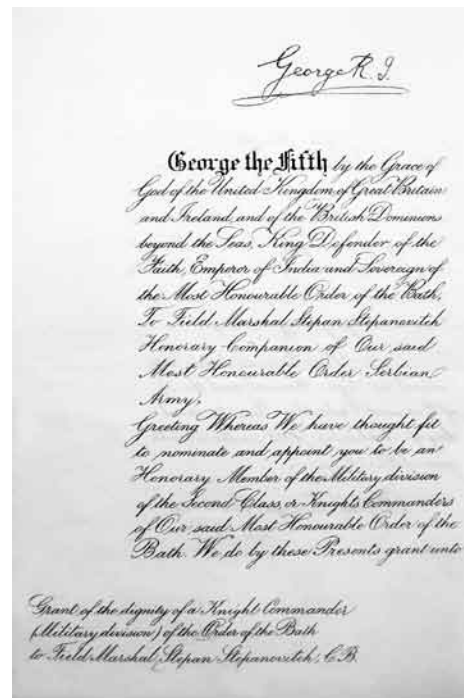 George R. I.
George the Fifth by the Grace of
God of the United Kingdom of Great Britain
and Ireland, and of the British Dominions
beyond the Seas, King, Defender of the
Faith, Emperor of India and Sovereign of
the Most Honourable Order of the Bath,
To Field Marshal Stepan Stepanovitch
Honorary Companion of Our said
Most Honourable Order Serbian
Army.
Greeting Whereas We have thought fit
to nominate and appoint you to be an
Honorary Member of the Military division
of the Second Class, or Knights Commanders
of Our said Most Honourable Order of the
Bath. We do by these Presents grant unto
Grant of the dignity of a Knight Commander
(Military division) of the Order of the Bath
to Field Marshal Stepan Stepanovitch, C.B.